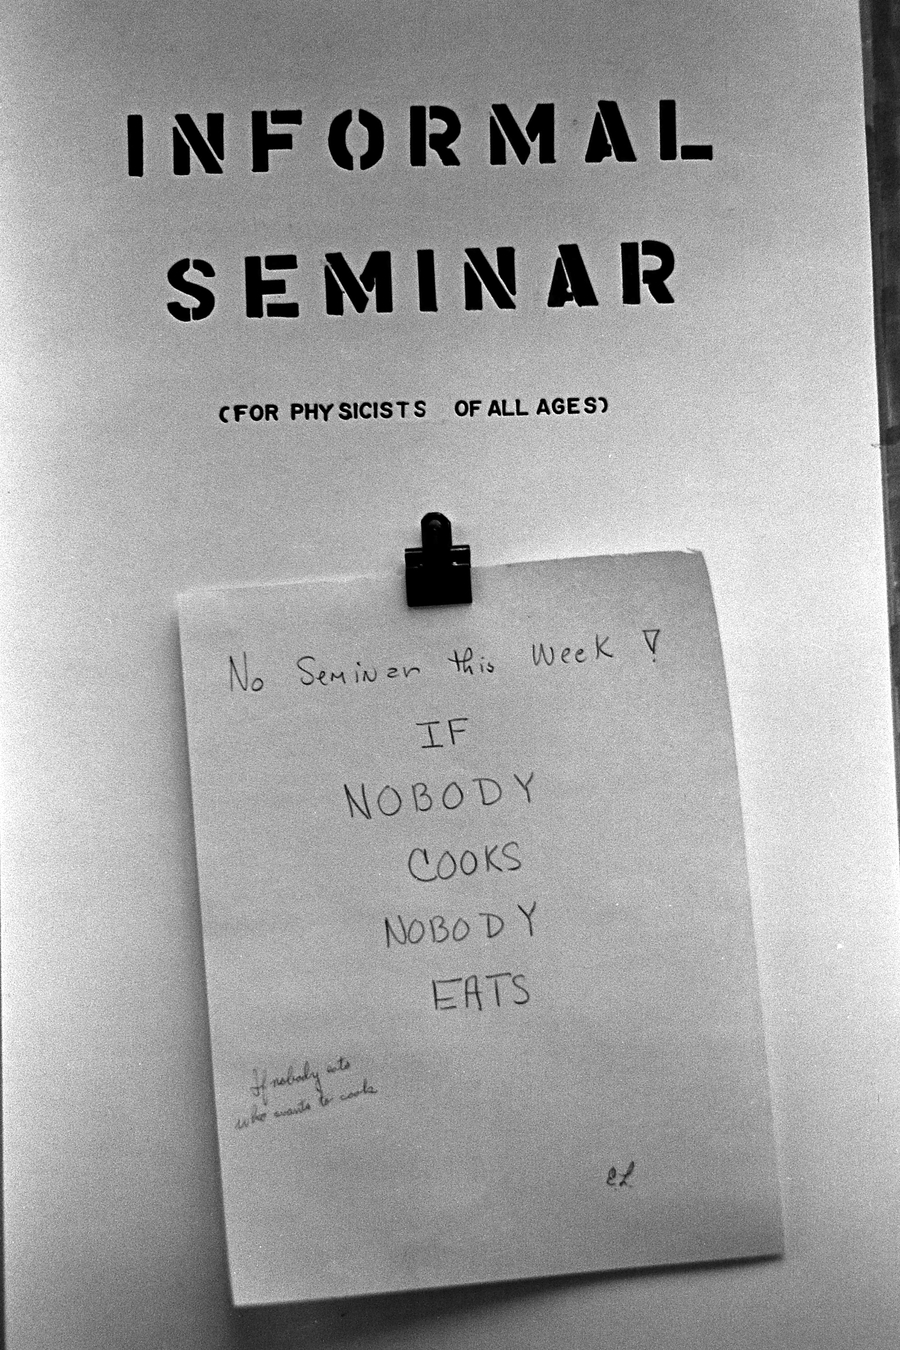 INFORMAL
SEMINAR
(FOR PHYSICISTS OF ALL AGES)
No Seminar this Week !
IF
NOBODY
COOKS
NOBODY
EATS
If nobody eats
who wants to cook
CL